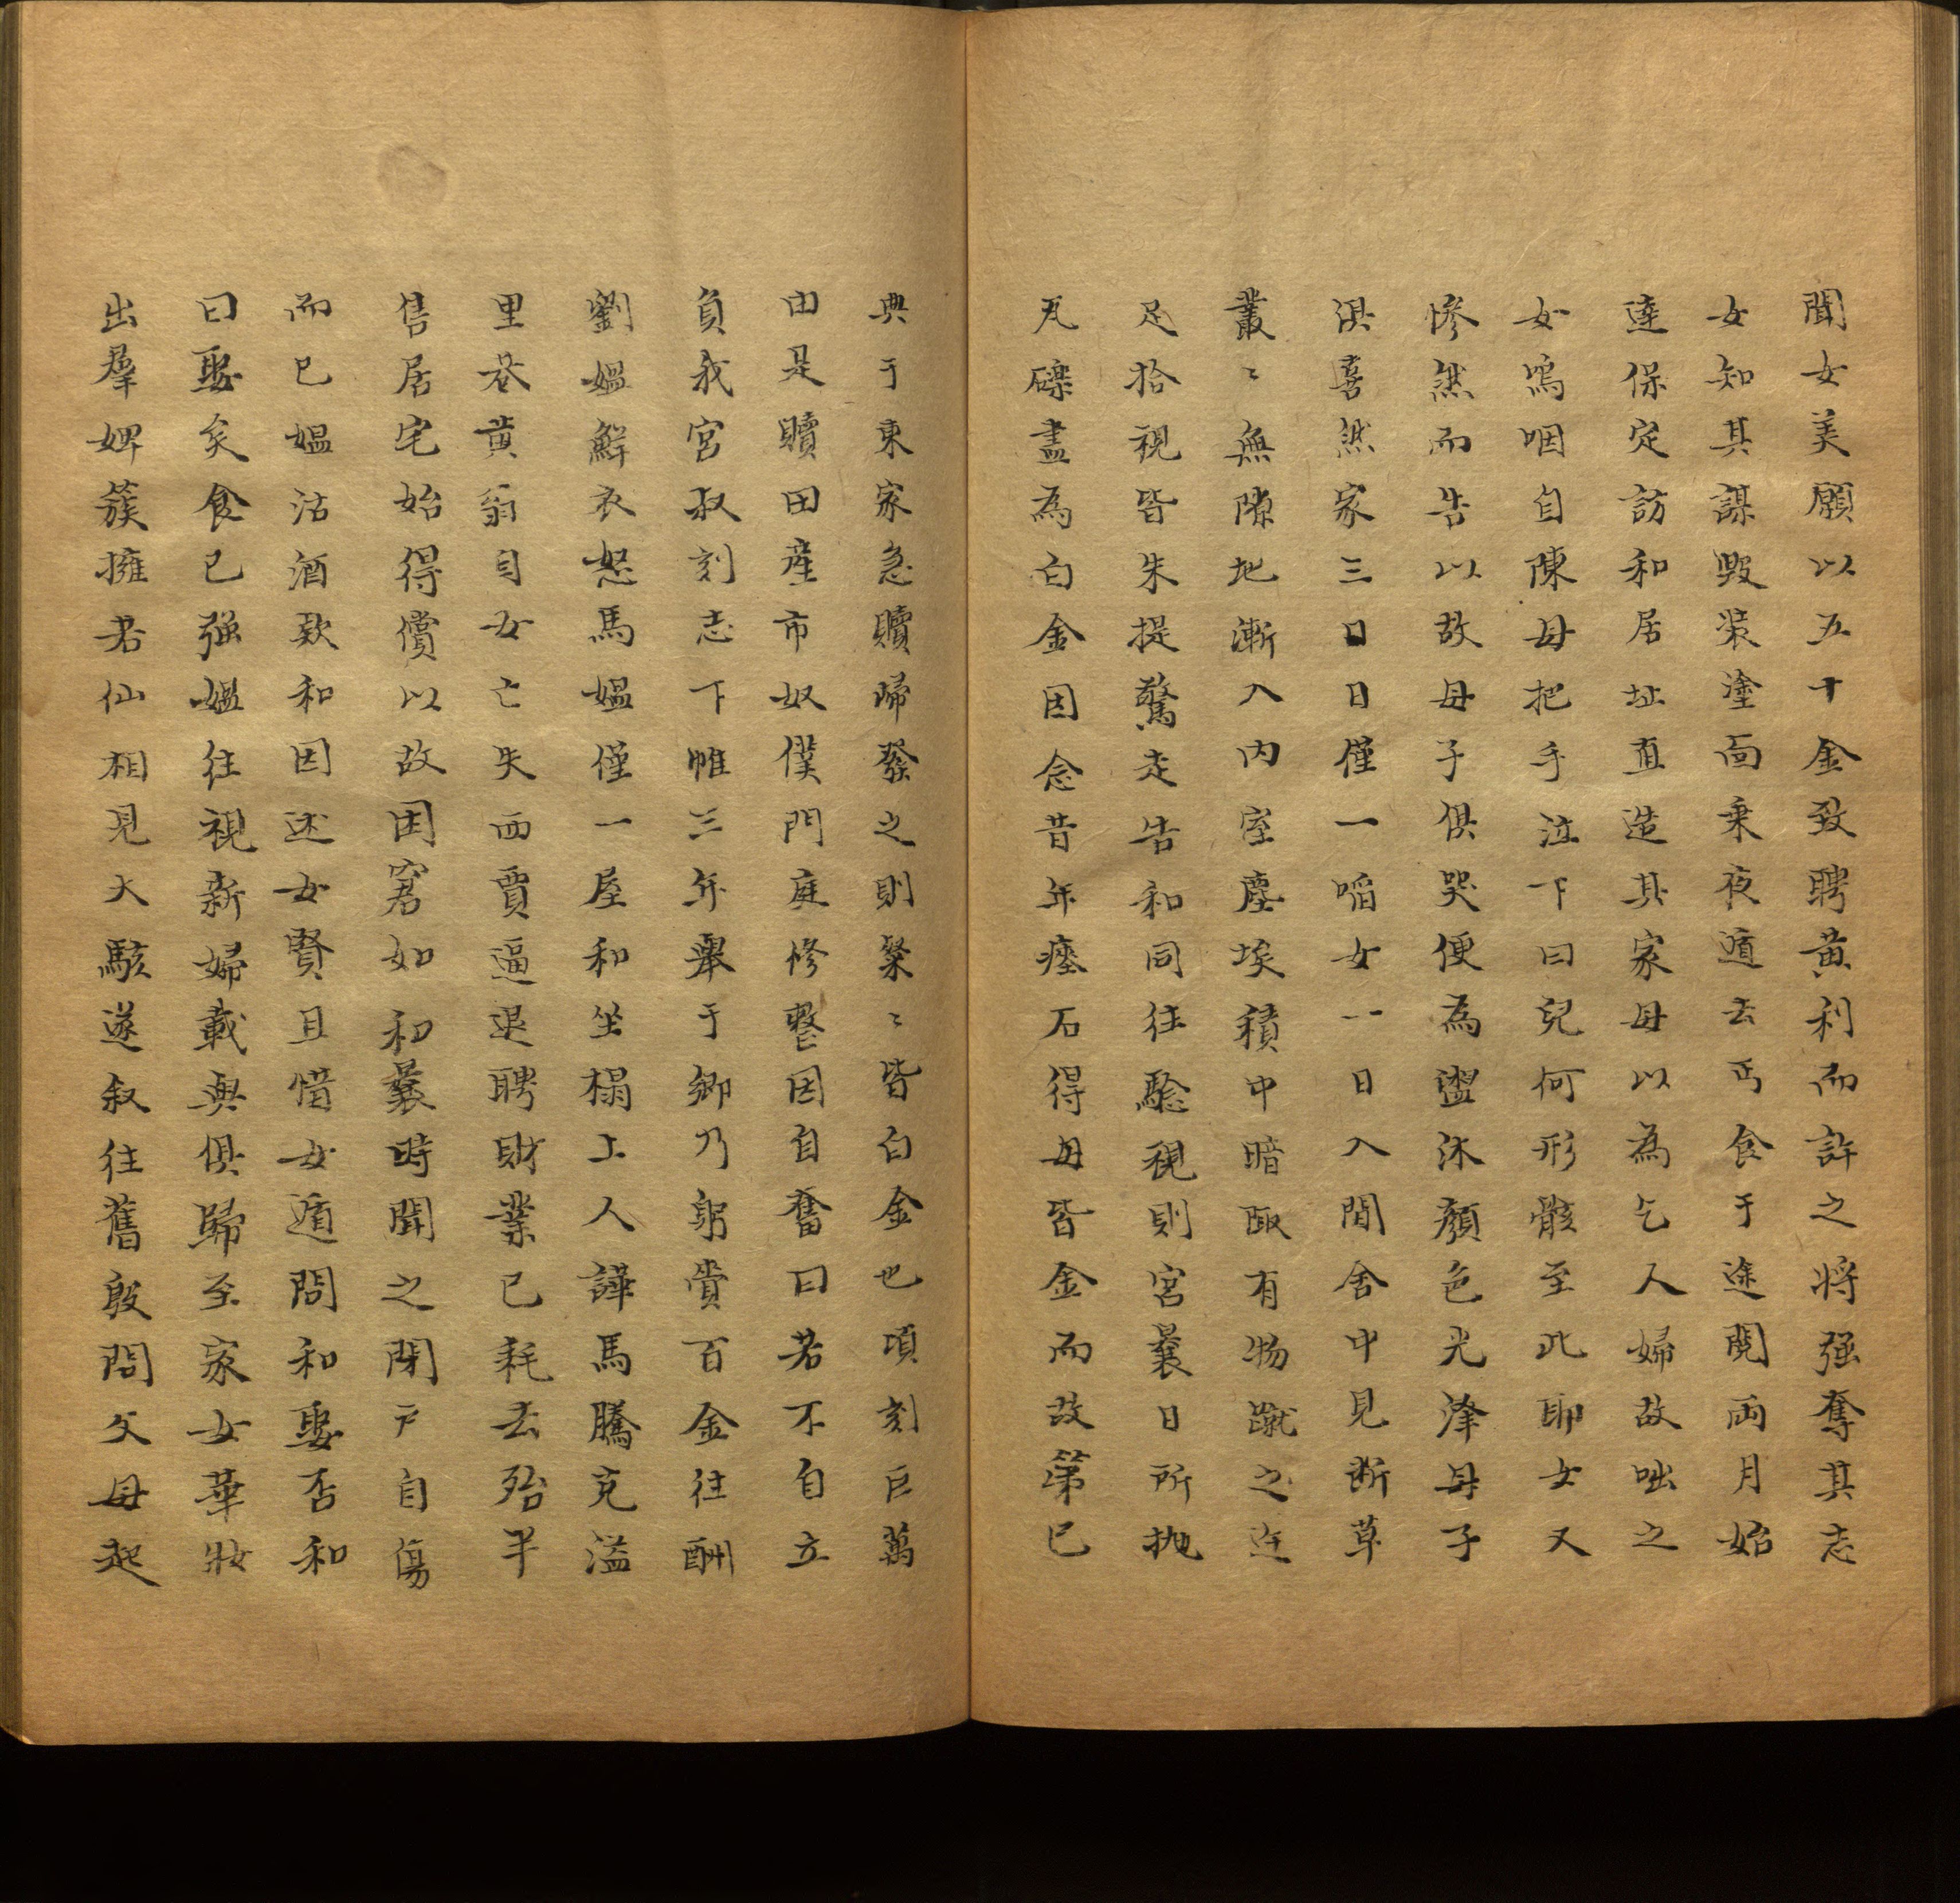 聞女美願以五十金致聘黃利而許之將强奪其志
女知其謀毀裝塗面乘夜遁去丐食于途閱両月始
達保定訪和居址直造其家母以為乞人婦故咄之
女嗚咽自陳母把手泣下曰兒何形骸至此耶女又
慘然而告以故母子俱哭便為盥沐顏色光澤母子
俱喜然家三日日僅一啗女一日入閒舍中見斷草
叢〻無隙地漸入內室塵埃積中暗陬有物蹴之迕
足拾視皆朱提驚走告和同往驗視則宮曩日所抛
瓦礫盡為白金因念昔年瘞石得毋皆金而故第已
典于東家急贖歸發之則粲〻皆白金也頃刻巨萬
由是贖田產市奴僕門庭修整因自奮曰若不自立
負我宮叔刻志下帷三年舉于鄉乃躬賫百金往酬
劉媼鮮衣怒馬媼僅一屋和坐榻上人譁馬騰充溢
里巷黃翁自女亡失西賈逼退聘財業已耗去殆半
售居宅始得償以故困窘如和曩時聞之閉戶自傷
而已媼沽酒欵和因述女賢且惜女遁問和娶否和
曰娶矣食已强媼往視新婦載與俱歸至家女華妝
出羣婢簇擁若仙相見大駭遂叙往舊殷問父母起